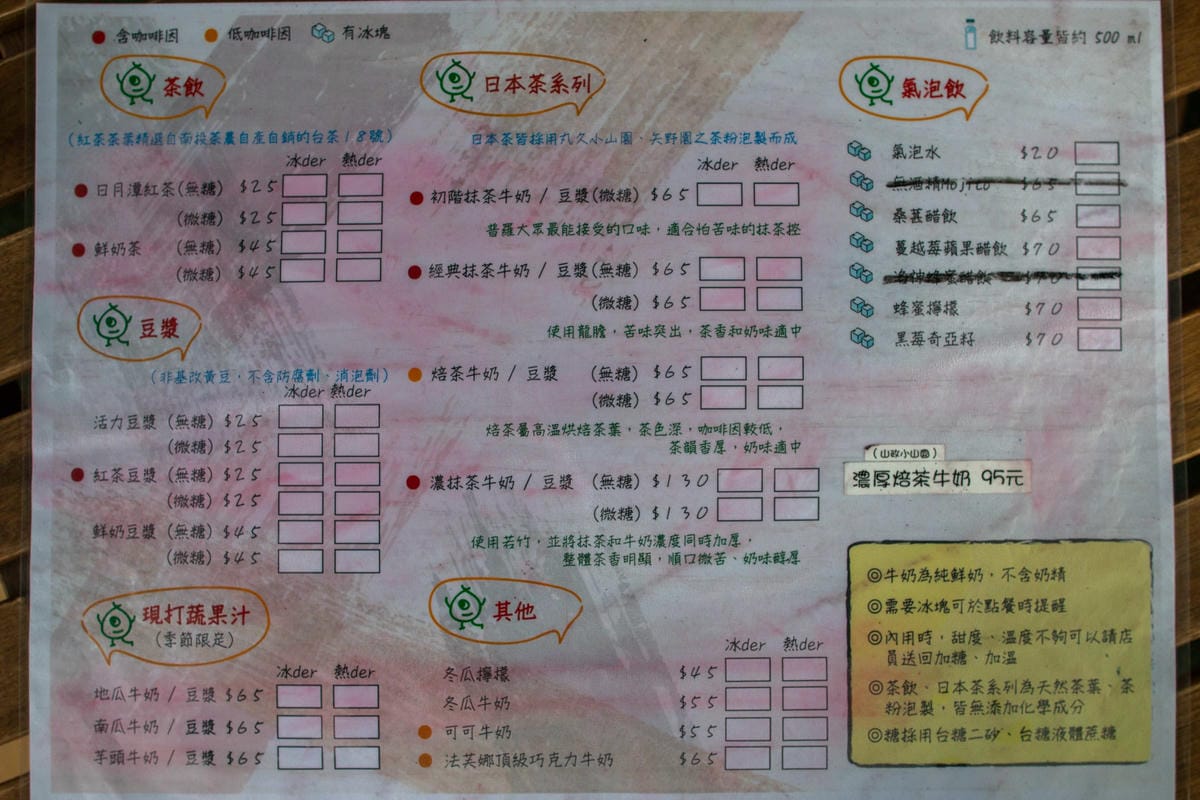 含咖啡因 低咖啡因 有冰塊
飲料容量皆約 500 ml
茶飲
(紅茶茶葉精選自南投茶農自產自銷的台茶18號)
冰der 熱der
日月潭紅茶(無糖) $25
(微糖) $25
鮮奶茶 (無糖) $45
(微糖) $45
豆漿
(非基改黃豆，不含防腐劑、消泡劑)
冰der 熱der
活力豆漿 (無糖) $25
(微糖) $25
紅茶豆漿 (無糖) $25
(微糖) $25
鮮奶豆漿 (無糖) $45
(微糖) $45
現打蔬果汁
(季節限定)
冰der 熱der
地瓜牛奶 / 豆漿 $65
南瓜牛奶 / 豆漿 $65
芋頭牛奶 / 豆漿 $65
日本茶系列
日本茶皆採用丸久小山園、矢野園之茶粉泡製而成
冰der 熱der
初階抹茶牛奶 / 豆漿(微糖) $65
普羅大眾最能接受的口味，適合怕苦味的抹茶控
經典抹茶牛奶 / 豆漿(無糖) $65
(微糖) $65
使用龍膽，苦味突出，茶香和奶味適中
焙茶牛奶 / 豆漿 (無糖) $65
(微糖) $65
焙茶屬高溫烘焙茶葉，茶色深，咖啡因較低，
茶韻香厚，奶味適中
濃抹茶牛奶 / 豆漿 (無糖) $130
(微糖) $130
使用若竹，並將抹茶和牛奶濃度同時加厚，
整體茶香明顯，順口微苦、奶味醇厚
其他
冰der 熱der
冬瓜檸檬 $45
冬瓜牛奶 $55
可可牛奶 $55
法芙娜頂級巧克力牛奶 $65
氣泡飲
氣泡水 $20
無酒精Mojito $65
桑葚醋飲 $65
蔓越莓蘋果醋飲 $70
洛神蜂蜜醋飲 $70
蜂蜜檸檬 $70
黑莓奇亞籽 $70
(山政小山園)
濃厚焙茶牛奶 95元
◎牛奶為純鮮奶，不含奶精
◎需要冰塊可於點餐時提醒
◎內用時，甜度、溫度不夠可以請店
員送回加糖、加溫
◎茶飲、日本茶系列為天然茶葉、茶
粉泡製，皆無添加化學成分
◎糖採用台糖二砂、台糖液體蔗糖